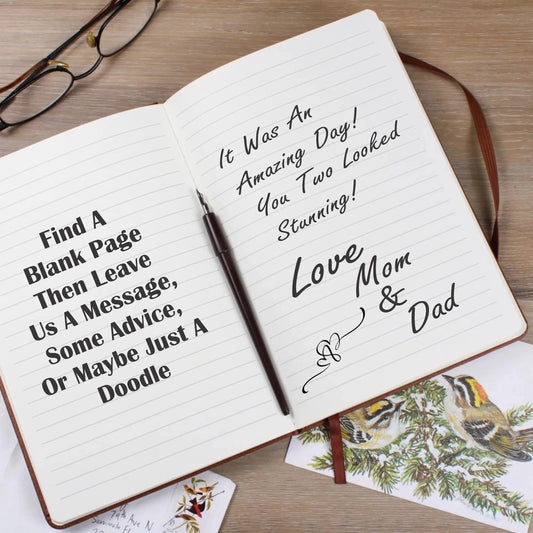 Find A
Blank Page
Then Leave
Us A Message,
Some Advice,
Or Maybe Just A
Doodle
It Was An
Amazing Day!
You Two Looked
Stunning!
Love
Mom
&
Dad
79th Ave N